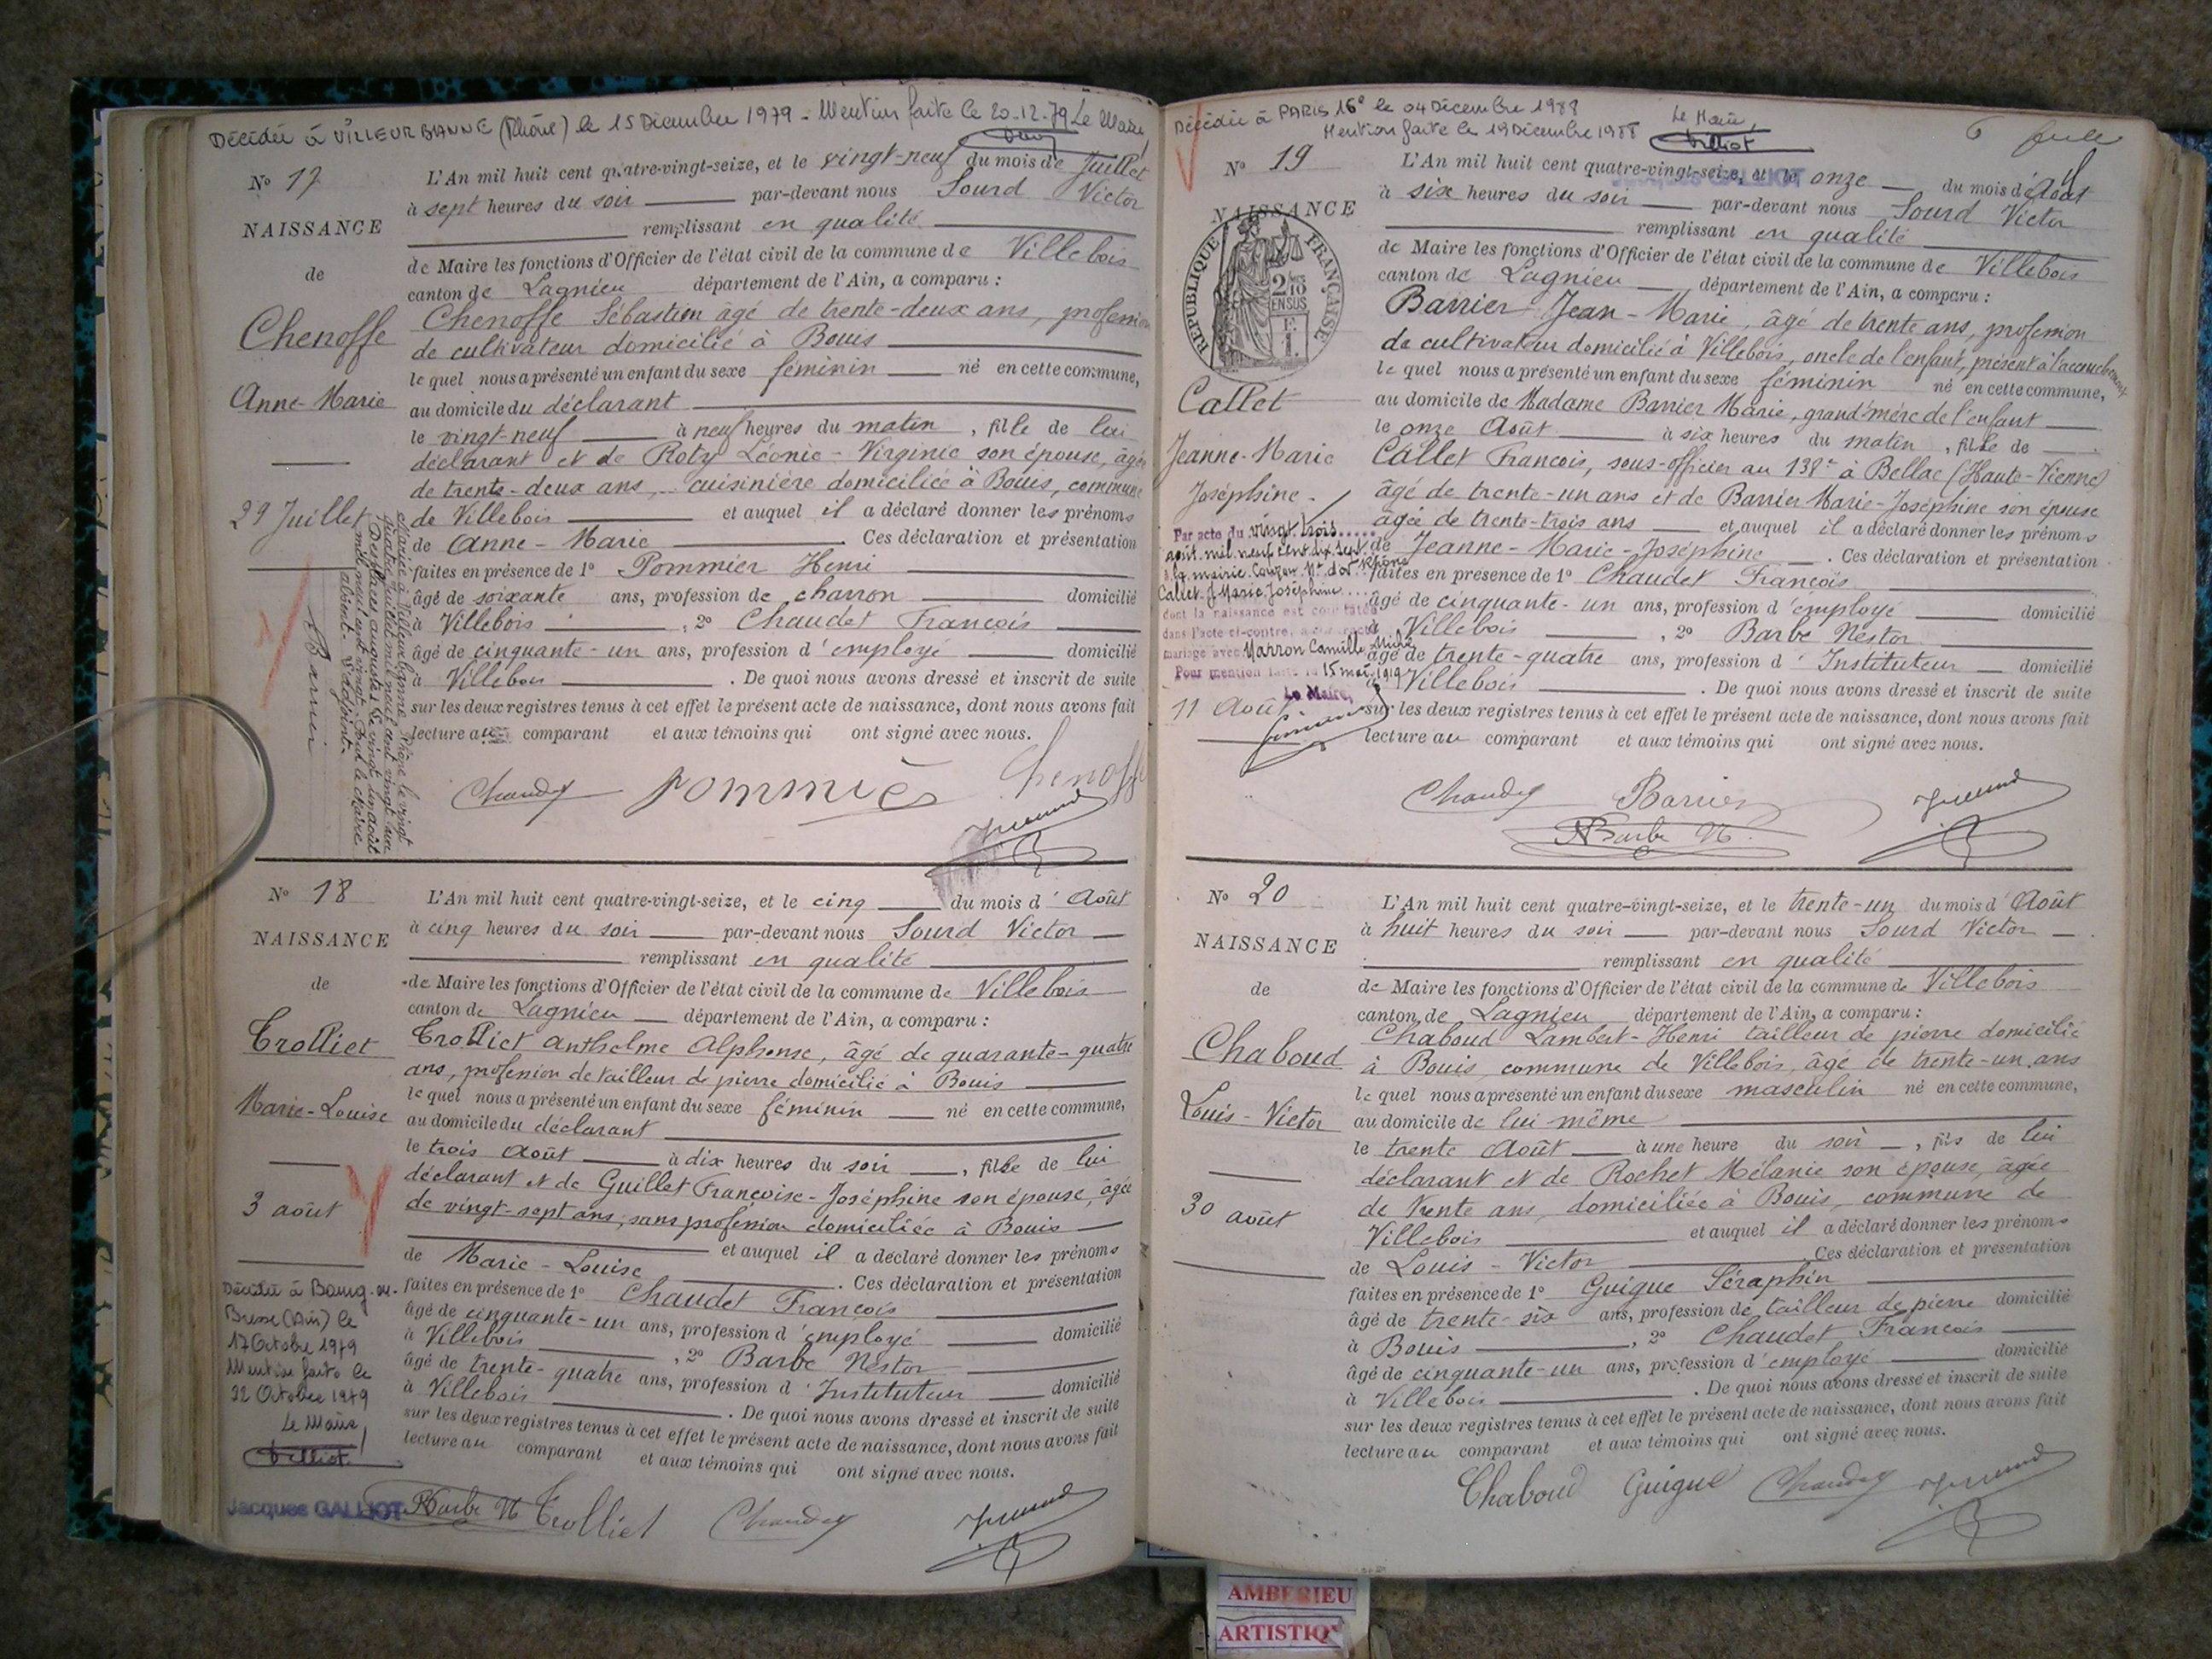 Décédée à VILLEURBANNE (Rhône) le 15 Décembre 1979 - Mention faite le 20-12-79 Le Maire,
N° 17
NAISSANCE
de
Chenoffe
Anne-Marie
29 Juillet
L'An mil huit cent quatre-vingt-seize, et le vingt-neuf du mois de Juillet
à sept heures du soir par-devant nous Sourd Victor
remplissant en qualité
de Maire les fonctions d'Officier de l'état civil de la commune de Villebois
canton de Lagnieu département de l'Ain, a comparu :
Chenoffe Sébastien âgé de trente-deux ans, profession
de cultivateur domicilié à Bouis
le quel nous a présenté un enfant du sexe féminin né en cette commune,
au domicile du déclarant
le vingt-neuf à neuf heures du matin, fille de lui
déclarant et de Roty Léonie-Virginie son épouse, âgée
de trente-deux ans, cuisinière domiciliée à Bouis, commune
de Villebois et auquel il a déclaré donner les prénoms
de Anne-Marie Ces déclaration et présentation
faites en présence de 1° Pommier Henri
âgé de soixante ans, profession de charron domicilié
à Villebois, 2° Chaudet François
âgé de cinquante-un ans, profession d'employé domicilié
à Villebois. De quoi nous avons dressé et inscrit de suite
sur les deux registres tenus à cet effet le présent acte de naissance, dont nous avons fait
lecture au comparant et aux témoins qui ont signé avec nous.
Mariée à Villeurbanne, Rhône, le vingt
quatre Juillet mil neuf cent vingt un
Desplaces auguste. Le vingt un août
mil neuf cent vingt. Pour le Maire
absent. L'adjoint.
Barrier
Chaudet Pommiè Chenoffe
N° 18
NAISSANCE
de
Trolliet
Marie-Louise
3 août
L'An mil huit cent quatre-vingt-seize, et le cinq du mois d'Août
à cinq heures du soir par-devant nous Sourd Victor
remplissant en qualité
de Maire les fonctions d'Officier de l'état civil de la commune de Villebois
canton de Lagnieu département de l'Ain, a comparu :
Trolliet Anthelme Alphonse, âgé de quarante-quatre
ans, profession de tailleur de pierre domicilié à Bouis
le quel nous a présenté un enfant du sexe féminin né en cette commune,
au domicile du déclarant
le trois Août à dix heures du soir, fille de lui
déclarant et de Guillet Françoise-Joséphine son épouse, âgée
de vingt-sept ans, sans profession domiciliée à Bouis
et auquel il a déclaré donner les prénoms
de Marie-Louise. Ces déclaration et présentation
faites en présence de 1° Chaudet François
âgé de cinquante-un ans, profession d'employé domicilié
à Villebois, 2° Barbe Nestor
âgé de trente-quatre ans, profession d'Instituteur domicilié
à Villebois. De quoi nous avons dressé et inscrit de suite
sur les deux registres tenus à cet effet le présent acte de naissance, dont nous avons fait
lecture au comparant et aux témoins qui ont signé avec nous.
Décédée à Bourg-en-
Bresse (Ain) le
17 Octobre 1979
Mention faite le
22 Octobre 1979
Le Maire,
Jacques GALLIOT
Barbe N Trolliet Chaudet
Décédée à PARIS 16e le 04 Décembre 1988
Mention faite le 19 Décembre 1988 Le Maire,
6
N° 19
NAISSANCE
RÉPUBLIQUE FRANÇAISE
2/10 EN SUS
Callet
Jeanne-Marie
Joséphine
11 Août
Jacques GALLIOT
L'An mil huit cent quatre-vingt-seize, et le onze du mois d'Août
à six heures du soir par-devant nous Sourd Victor
remplissant en qualité
de Maire les fonctions d'Officier de l'état civil de la commune de Villebois
canton de Lagnieu département de l'Ain, a comparu :
Barrier Jean-Marie, âgé de trente ans, profession
de cultivateur domicilié à Villebois, oncle de l'enfant, présent à l'accouchement
le quel nous a présenté un enfant du sexe féminin né en cette commune,
au domicile de Madame Barrier Marie, grand'mère de l'enfant
le onze Août à six heures du matin, fille de
Callet François, sous-officier au 138e à Bellac (Haute-Vienne)
âgé de trente-un ans et de Barrier Marie-Joséphine son épouse
âgée de trente-trois ans et auquel il a déclaré donner les prénoms
de Jeanne-Marie-Joséphine. Ces déclaration et présentation
faites en présence de 1° Chaudet François
âgé de cinquante-un ans, profession d'employé domicilié
à Villebois, 2° Barbe Nestor
âgé de trente-quatre ans, profession d'Instituteur domicilié
à Villebois. De quoi nous avons dressé et inscrit de suite
sur les deux registres tenus à cet effet le présent acte de naissance, dont nous avons fait
lecture au comparant et aux témoins qui ont signé avec nous.
Par acte du vingt trois
août mil neuf cent dix sept
à la mairie Couzon Mt d'or Rhône
Callet J Marie Joséphine
dont la naissance est constatée
dans l'acte ci-contre, a contracté
mariage avec Marron Camille Michel
Pour mention faite le 15 mai 1919
Le Maire,
Chaudet Barrier
Barbe N.
N° 20
NAISSANCE
de
Chaboud
Louis-Victor
30 août
L'An mil huit cent quatre-vingt-seize, et le trente-un du mois d'Août
à huit heures du soir par-devant nous Sourd Victor
remplissant en qualité
de Maire les fonctions d'Officier de l'état civil de la commune de Villebois
canton de Lagnieu département de l'Ain, a comparu :
Chaboud Lambert-Henri tailleur de pierre domicilié
à Bouis, commune de Villebois, âgé de trente-un ans
le quel nous a présenté un enfant du sexe masculin né en cette commune,
au domicile de lui même
le trente Août à une heure du soir, fils de lui
déclarant et de Rochet Mélanie son épouse, âgée
de trente ans, domiciliée à Bouis, commune de
Villebois et auquel il a déclaré donner les prénoms
de Louis-Victor Ces déclaration et présentation
faites en présence de 1° Guigue Séraphin
âgé de trente-six ans, profession de tailleur de pierre domicilié
à Bouis, 2° Chaudet François
âgé de cinquante-un ans, profession d'employé domicilié
à Villebois. De quoi nous avons dressé et inscrit de suite
sur les deux registres tenus à cet effet le présent acte de naissance, dont nous avons fait
lecture au comparant et aux témoins qui ont signé avec nous.
Chaboud Guigue Chaudet
AMBERIEU
ARTISTIQ